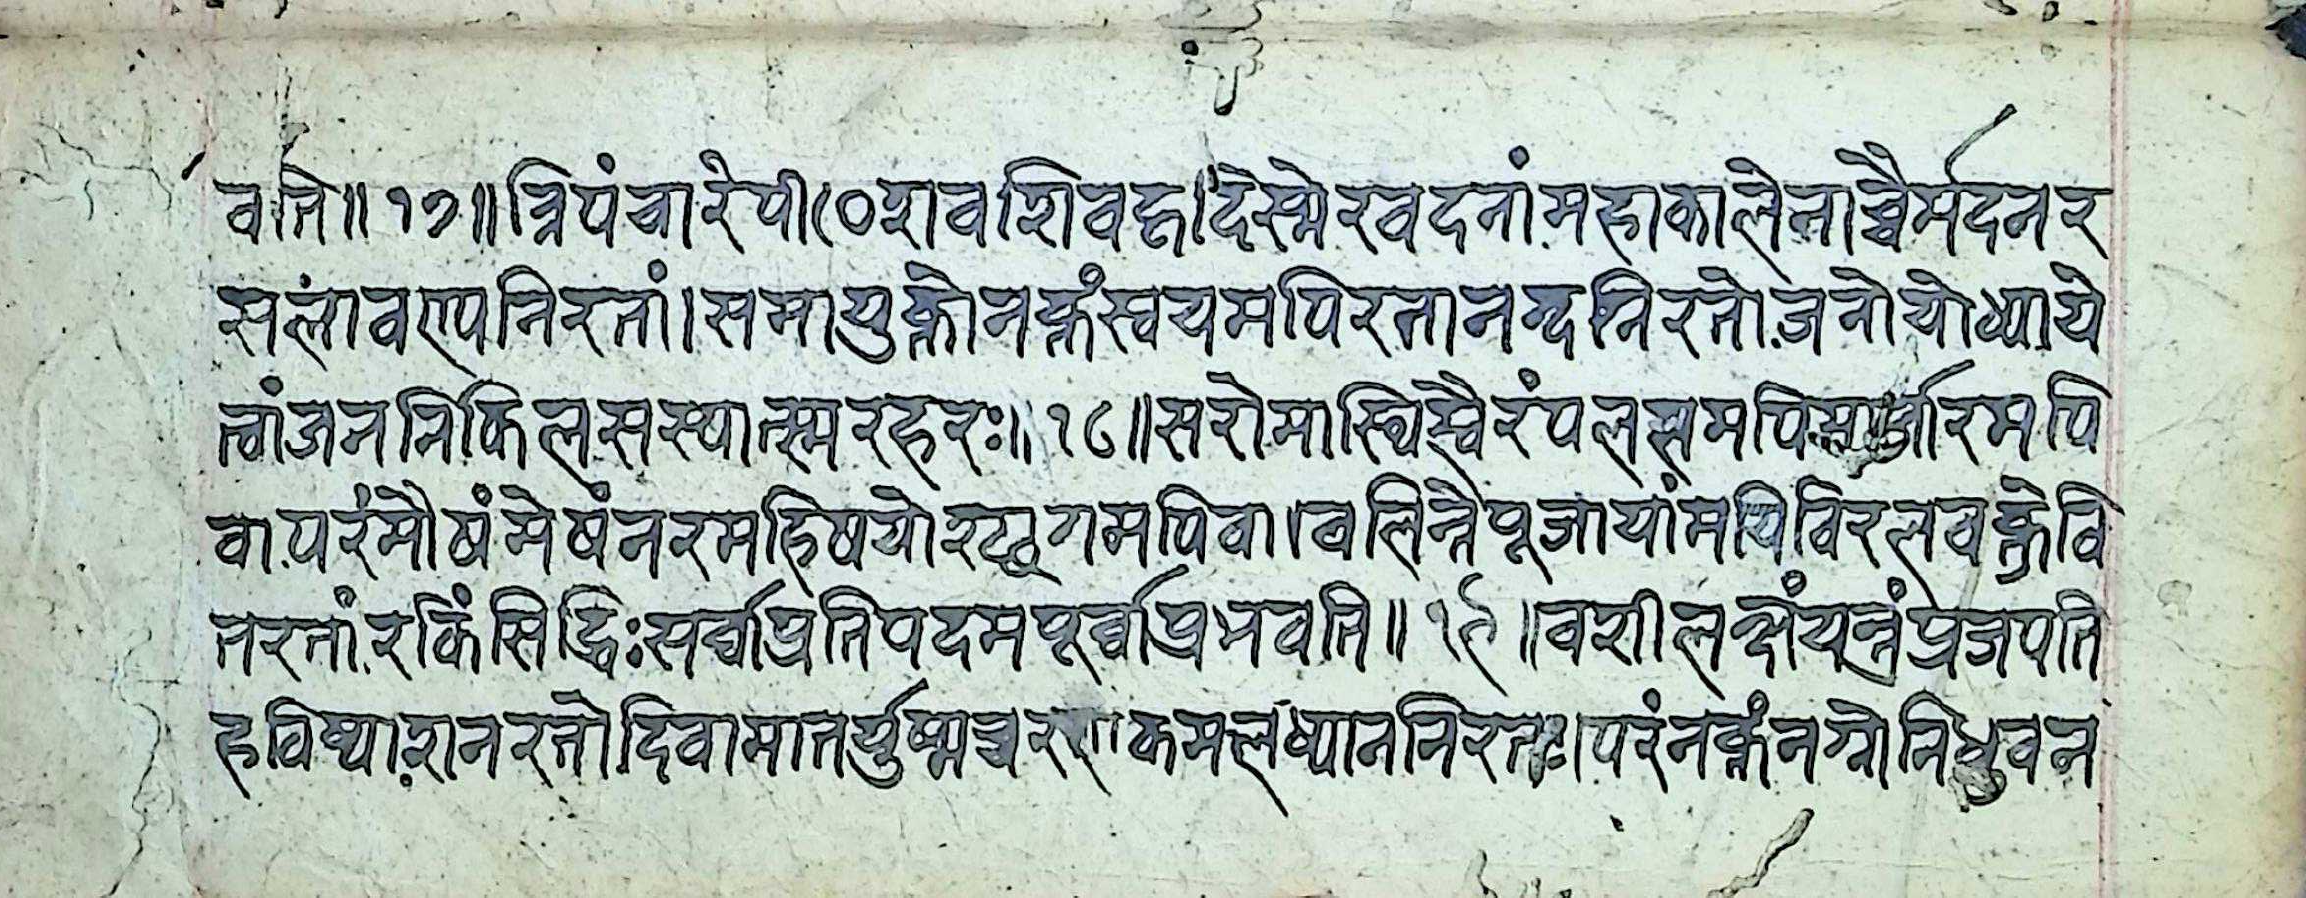 वति॥१७॥त्रिपंचारेपीठेशवशिवहृदिस्मेरवदनांमहाकालेनोच्चैर्मदनर
सलावण्यनिरतां।समायुक्तोनक्तंस्वयमपिरतानन्दनिरतोजनोयोध्याये
त्त्वांजननिकिलसस्यात्स्मरहरः॥१८॥सरोमास्थिस्वैरंपललमपिमार्जारमपि
वापरंमौषंमेषंनरमहिषयोश्छागमपिवा।वलिन्तेपूजायांमपिविरलवक्त्रेवि
तरतांरकिंसिद्धिःसर्वाप्रतिपदमपूर्वाप्रभवति॥१९॥वशीलक्षंयन्त्रंप्रजपति
हविष्याशनरतोदिवामातर्युष्मच्चरणकमलध्याननिरतः।परंनक्तंनग्नोनिधुवन